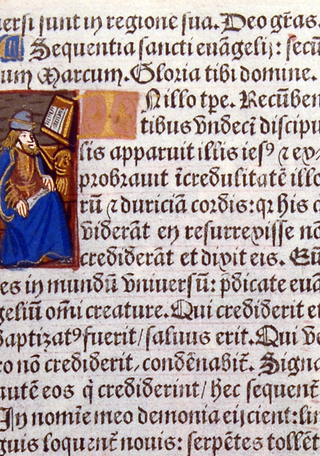 ersi sunt in regione sua. Deo gr̃as.
Sequentia sancti euãgelij: secũ
um Marcum. Gloria tibi domine.
N illo tpe. Recũben
tibus vndeci discipu
lis apparuit illis iesꝰ ⁊ ex
probrauit ĩcredulitatẽ illo
rũ ⁊ duriciã cordis: qꝛ his q
viderãt eũ resurrexisse nõ
crediderãt et dixit eis. Eũ
es in mundũ vniuersũ: p̃dicate euã
geliũ om̃i creature. Qui crediderit et
baptizatꝰ fuerit / saluus erit. Qui ve
ro nõ crediderit, condẽnabit̃. Signa
autẽ eos q̃ crediderint / hec sequent̃
In nomĩe meo demonia eijcient: lin
guis loquent̃ nouis: serpẽtes tollẽt